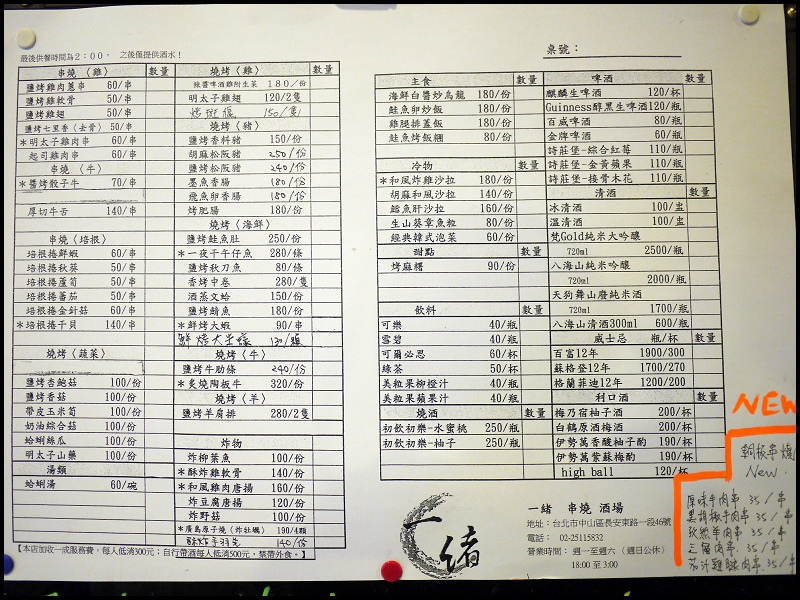 最後供餐時間為2:00, 之後僅提供酒水!
串燒 (雞) 數量
鹽烤雞肉蔥串 60/串
鹽烤雞軟骨 50/串
鹽烤雞翅 50/串
鹽烤七里香(去骨) 50/串
*明太子雞肉串 60/串
起司雞肉串 60/串
串燒 (牛)
*醬烤骰子牛 70/串
厚切牛舌 140/串
串燒(培根)
培根捲鮮蝦 60/串
培根捲秋葵 50/串
培根捲蘆筍 50/串
培根捲蕃茄 50/串
培根捲金針菇 60/串
*培根捲干貝 140/串
燒烤(蔬菜)
鹽烤杏鮑菇 100/份
鹽烤香菇 100/份
帶皮玉米筍 100/份
奶油綜合菇 100/份
蛤蜊絲瓜 100/份
明太子山藥 100/份
湯類
蛤蜊湯 60/碗
燒烤(雞) 數量
辣醬啤酒雞附生菜 180/份
明太子雞翅 120/2隻
150/隻
燒烤(豬)
鹽烤香料豬 150/份
胡麻松阪豬 250/份
鹽烤松阪豬 240/份
墨魚香腸 180/份
飛魚卵香腸 180/份
烤肥腸 180/份
燒烤(海鮮)
鹽烤鮭魚肚 250/份
*一夜干午仔魚 280/條
鹽烤秋刀魚 80/條
香烤中卷 280/隻
酒蒸文蛤 150/份
鹽烤鯖魚 180/份
*鮮烤大蝦 90/串
鮮烤大生蠔 130/顆
燒烤(牛)
鹽烤牛肋條 240/份
*炙燒陶板牛 320/份
燒烤(羊)
鹽烤羊肩排 280/2隻
炸物
炸柳葉魚 100/份
*酥炸雞軟骨 140/份
*和風雞肉唐揚 160/份
炸豆腐唐揚 120/份
炸野菇 100/份
*廣島原子燒(炸牡蠣) 190/4顆
140/份
【本店加收一成服務費,每人低消300元;自行帶酒每人低消500元,禁帶外食。】
桌號:
主食 數量
海鮮白醬炒烏龍 180/份
鮭魚卵炒飯 180/份
雞腿排蓋飯 180/份
鮭魚烤飯糰 80/份
冷物 數量
*和風炸雞沙拉 180/份
胡麻和風沙拉 140/份
鱈魚肝沙拉 160/份
生山葵章魚粒 80/份
經典韓式泡菜 60/份
甜點 數量
烤麻糬 90/份
飲料 數量
可樂 40/瓶
雪碧 40/瓶
可爾必思 60/杯
綠茶 50/杯
美粒果柳橙汁 40/瓶
美粒果蘋果汁 40/瓶
燒酒 數量
初飲初樂-水蜜桃 250/瓶
初飲初樂-柚子 250/瓶
啤酒 數量
麒麟生啤酒 120/杯
Guinness醇黑生啤酒120/瓶
百威啤酒 80/瓶
金牌啤酒 60/瓶
詩莊堡-綜合紅莓 110/瓶
詩莊堡-金黃蘋果 110/瓶
詩莊堡-接骨木花 110/瓶
清酒 數量
冰清酒 100/盅
溫清酒 100/盅
梵Gold純米大吟釀
720ml 2500/瓶
八海山純米吟釀
720ml 2000/瓶
天狗舞山廢純米酒
720ml 1700/瓶
八海山清酒300ml 600/瓶
威士忌 瓶/杯 數量
百富12年 1900/300
蘇格登12年 1700/270
格蘭菲迪12年 1200/200
利口酒 數量
梅乃宿柚子酒 200/杯
白鶴原酒梅酒 200/杯
伊勢萬香酸柚子酌 190/杯
伊勢萬紫蘇梅酌 190/杯
high ball 120/杯
一緒
一緒 串燒 酒場
地址:台北市中山區長安東路一段46號
電話: 02-25115832
營業時間:週一至週六 (週日公休)
18:00 至 3:00
NEW
銅板串燒
New.
原味牛肉串 35/串
黑胡椒牛肉串 35/串
孜然羊肉串 35/串
三層肉串 35/串
茄汁雞腿肉串 35/串